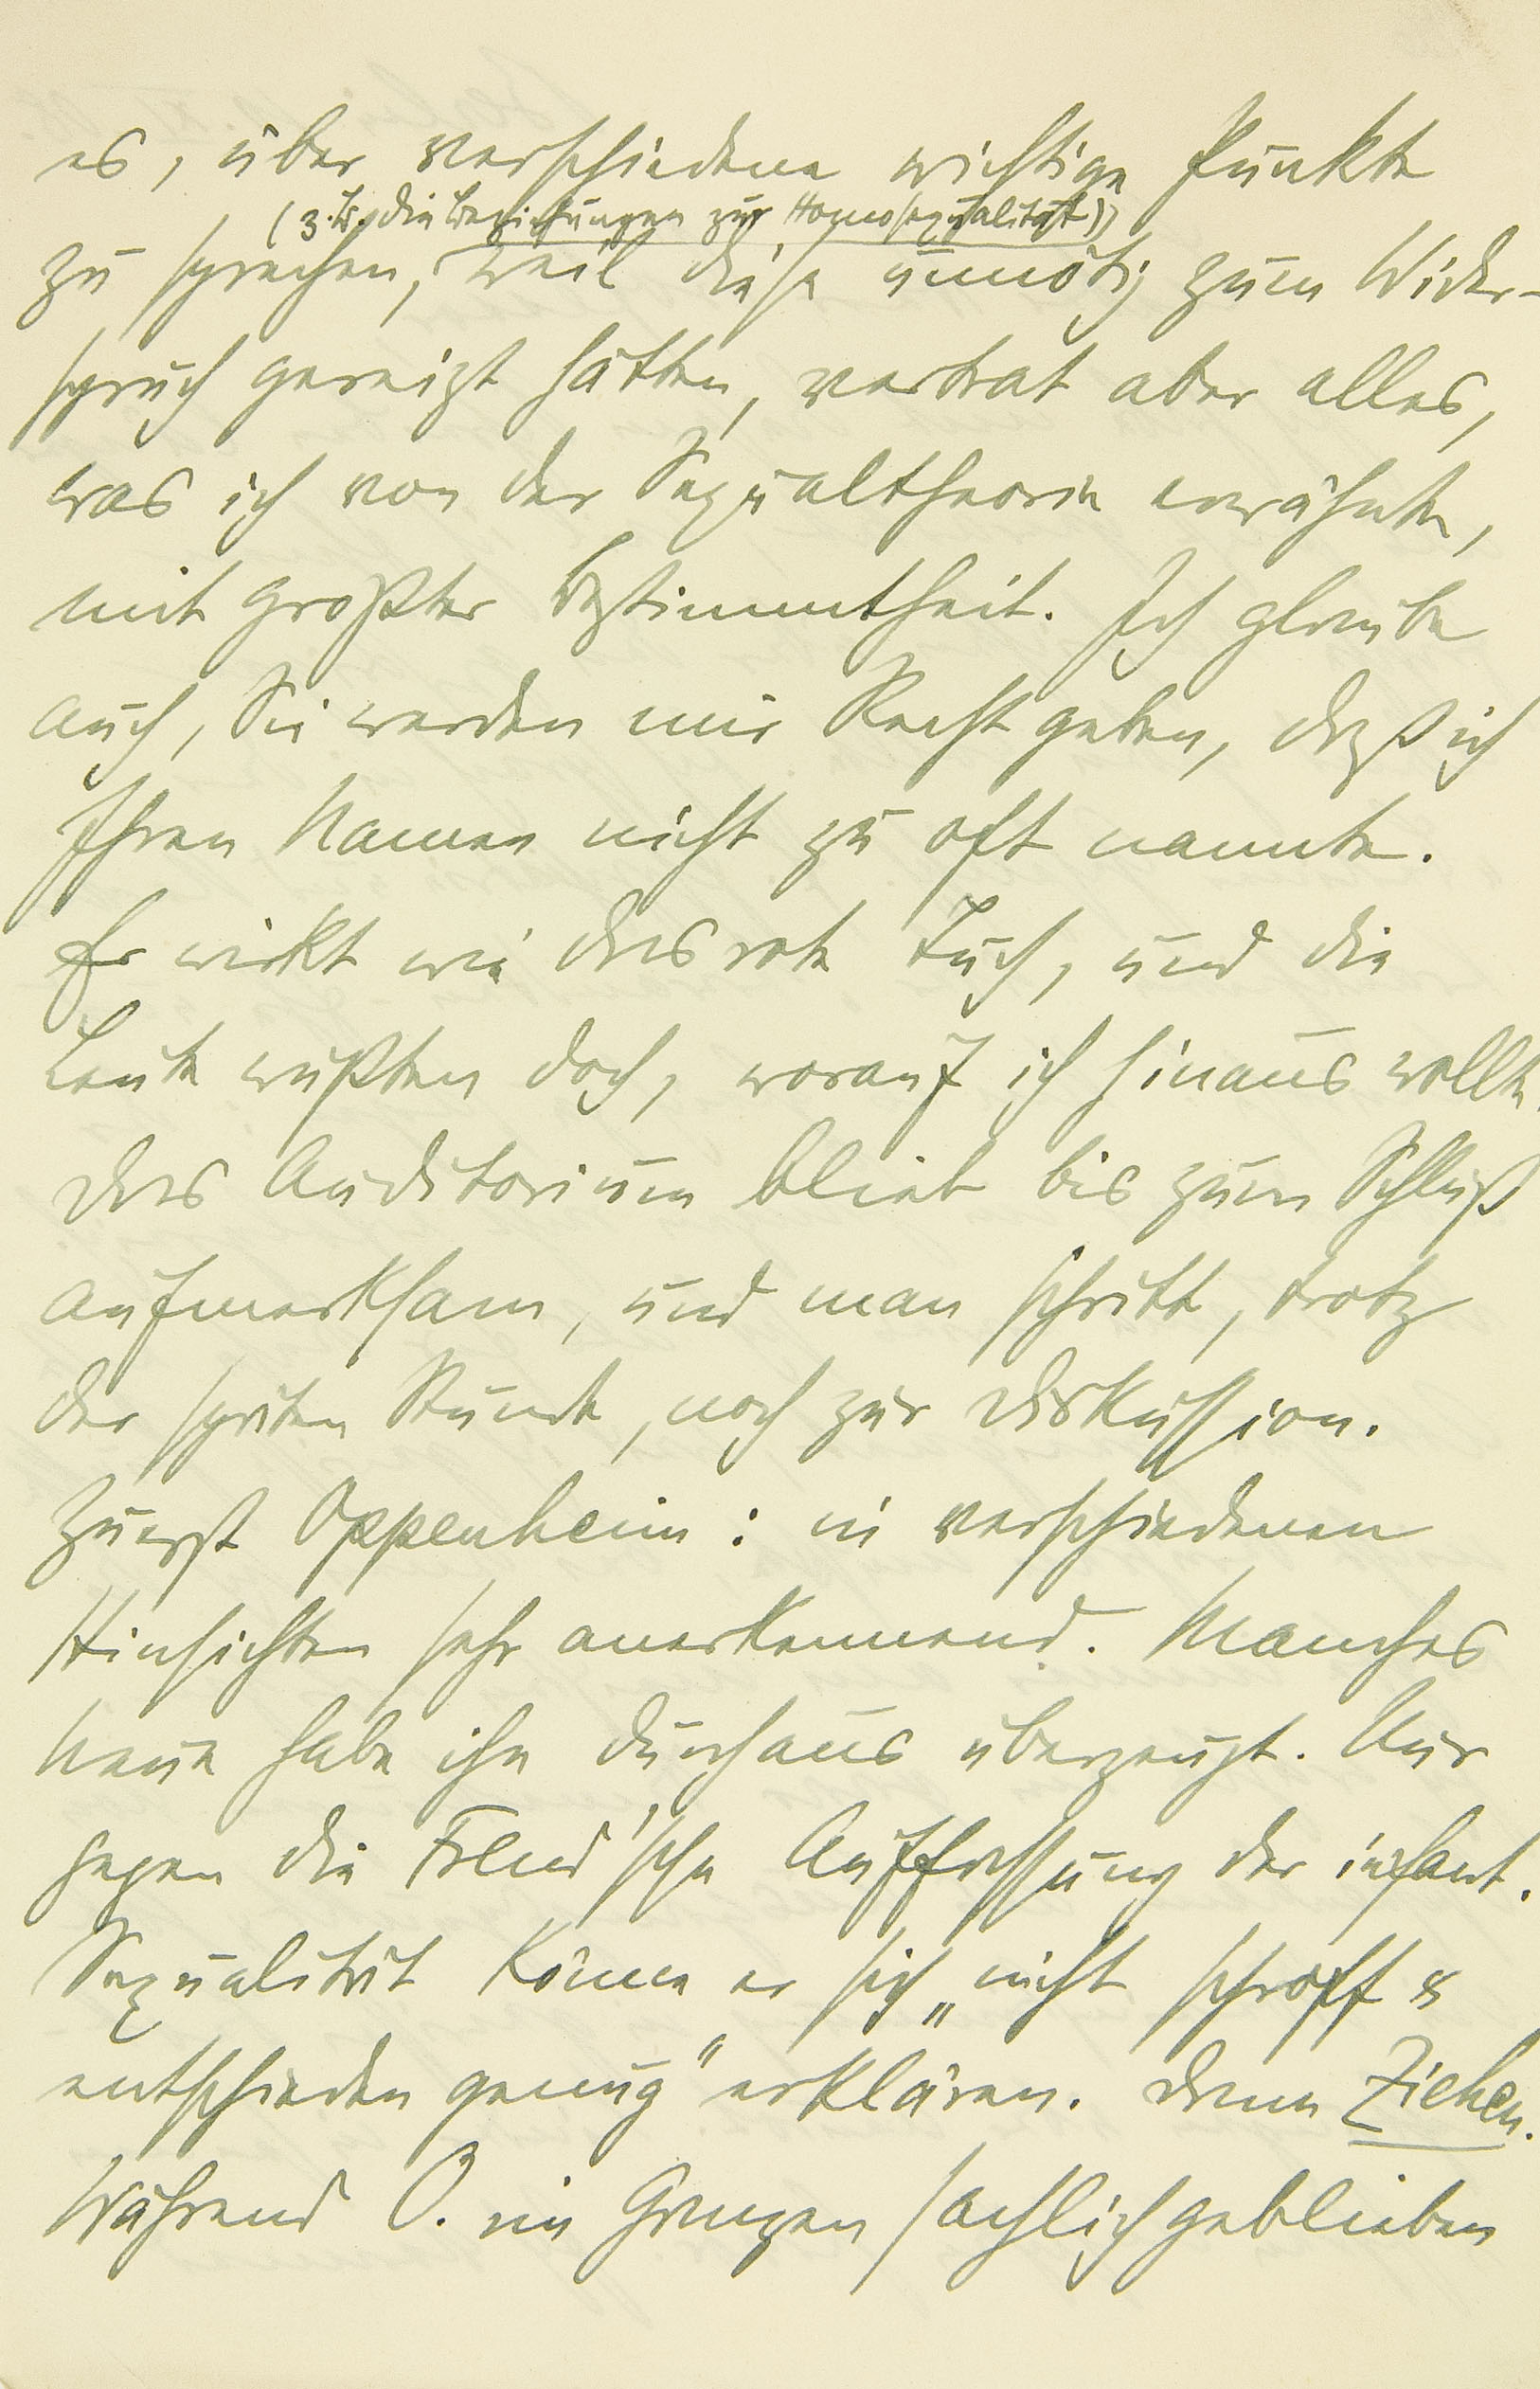 es, über verschiedene wichtige Punkte
(z. B. die Beziehungen zur Homosexualität)
zu sprechen, weil diese unnötig zum Wider-
spruch gereizt hätten, vertrat aber alles,
was ich von der Sexualtheorie erwähnte,
mit größter Bestimmtheit. Ich glaube
auch, Sie werden mir Recht geben, daß ich
Ihren Namen nicht zu oft nannte.
Er wirkt wie das rote Tuch, und die
Leute wußten doch, worauf ich hinaus wollte.
Das Auditorium blieb bis zum Schluß
aufmerksam, und man schritt, trotz
der späten Stunde, noch zur Diskussion.
Zuerst Oppenheim: in verschiedenen
Hinsichten sehr anerkennend. Manches
Neue habe ihn durchaus überzeugt. Nur
gegen die Freud'sche Auffassung der infant.
Sexualität könne er sich „nicht schroff &
entschieden genug" erklären. Dann Ziehen.
Während O. im Ganzen sachlich geblieben